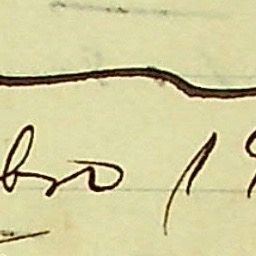 bro 19